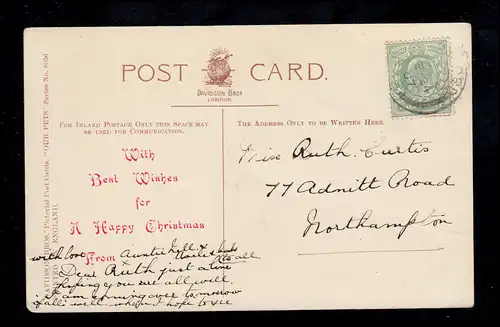 POST CARD.
DAVIDSON BROS
LONDON.
FOR INLAND POSTAGE ONLY THIS SPACE MAY
BE USED FOR COMMUNICATION.
THE ADDRESS ONLY TO BE WRITTEN HERE.
With
Best Wishes
for
A Happy Christmas
From Auntie Nell &
with love
to all
Dear Ruth just a line
hoping you are all well.
I am coming over tomorrow
if all's well. when I hope to see
Miss Ruth. Curtis
77 Adnitt Road
Northampton
DAVIDSON BROS.' Pictorial Post Cards, "OUR PETS" Series No. 6056
ENGLAND).